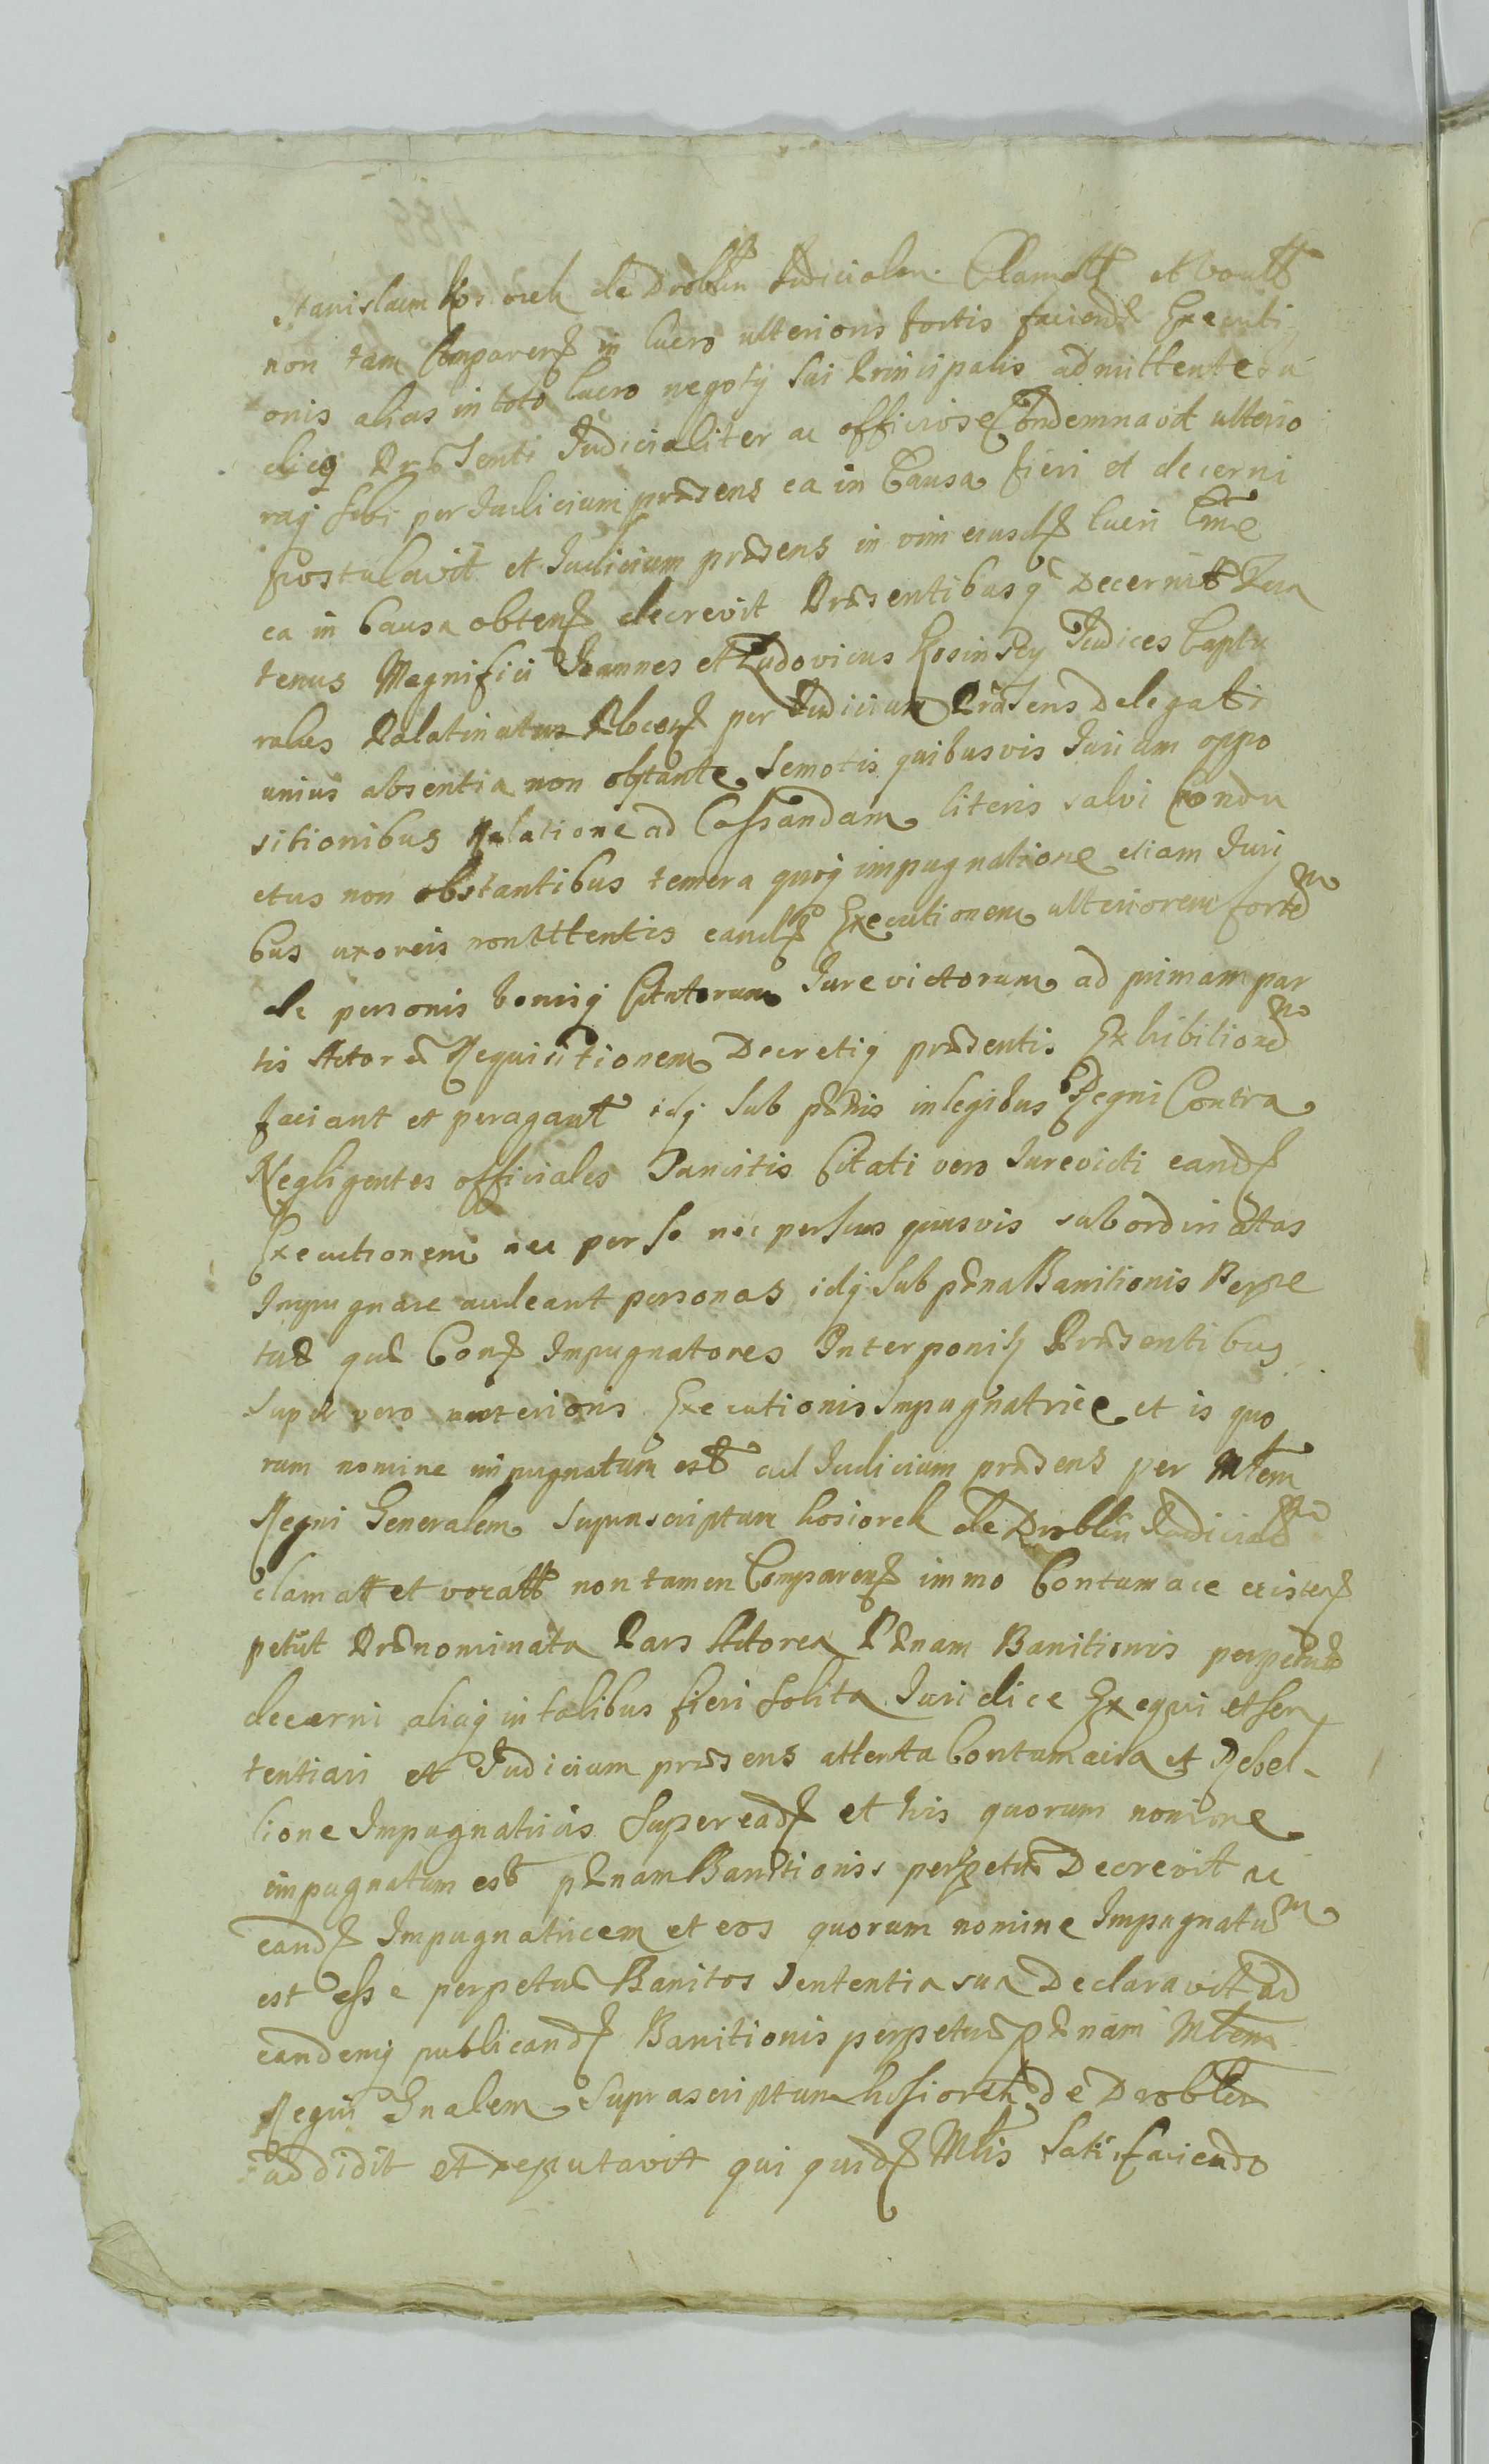 Stanislaum Kosiorek de Droblin Judicialem Clamatt et vocatt
non tam Comparen in lucro ulterioris fortis faciend Executi
onis alias in toto lucro negotij sui Principalis admittente Ju
dicioq Præsenti Judicialiter ac officiose Condemnavit ulterio
raq sibi per Judicium præsens ea in Causa fieri et decerni
postulavit et Judicium præsens in vim eiusd lucri
ea in Causa obten decrevit Præsentibusq Decernit Qua
tenus Magnifici Joannes et Ludovicus Kosinscy Judices Captu
rales Palatinatus Plocen per Judicium Præsens Delegati
unius absentia non obstante, semotis quibusvis Juriam oppo
sitionibus Relatione ad Cassandam literis salvi Condu
ctus non obstantibus temera quoq impugnatione etiam Juri
bus uxoreis non attentis eand Executionem ulteriorem fortem
de personis bonisq Citatorum Jurevictorum ad primam par
tis Actoreæ Requisitionem Decretiq præsentis Exhibitionem
faciant et peragant idq sub pænis in legibus Regni Contra
Negligentes officiales Sancitis Citati vero Jurevicti eand
Executionem nec per se nec per suas quasvis subordinatas
Impugnare audeant personas idq sub pæna Banitionis Perpe
tuæ quæ Con Impugnatores Interponitz Præsentibus
super vero anterioris Executionis Impugnatrice et is quo
rum nomine impugnatum est ad Judicium præsens per Mtem
Regni Generalem suprascriptum Kosiorek de Droblin Judicialr
clamatt et vocatt non tamen Comparen immo Contumace existen
petiit Prænominata Pars Actorea Pænam Banitionis perpetuæ
decerni aliaq in talibus fieri solita Juridice Exequi et sen
tentiari et Judicium præsens attenta Contumacia et Rebel-
lione Impugnatricis super ead et his quorum nomine
impugnatum est pænam Banitionis perpetuæ Decrevit ac
eand Impugnatricem et eos quorum nomine Impugnatum
est esse perpetuæ Banitos Sententia sua Declaravit ad
eandemq publicand Banitionis perpetuæ pænam Mtem
Regni Gnalem suprascriptum Kosiorek de Droblin
addidit et deputavit qui quid Mtis satisfaciendo